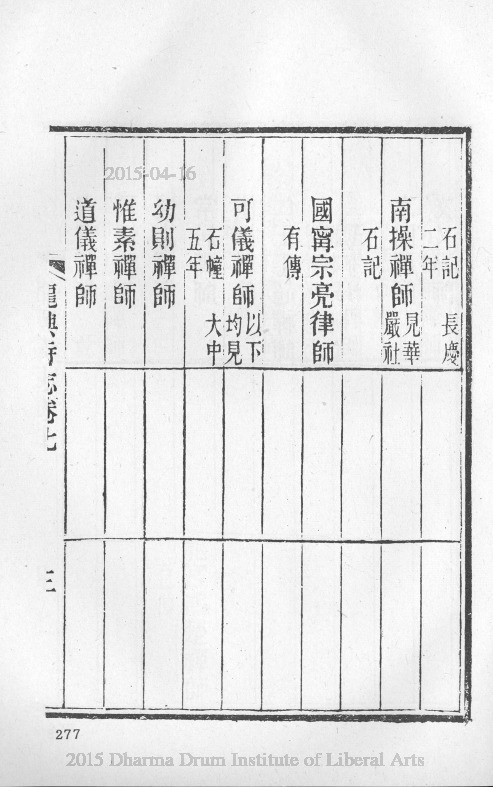 石記　長慶
二年
南操禪師　見華
嚴社
石記
國甯宗亮律師
有傳
可儀禪師　以下
均見
石幢　大中
五年
幼則禪師
惟素禪師
道儀禪師
龍興寺志卷七
三
277
2015-04-16
2015 Dharma Drum Institute of Liberal Arts